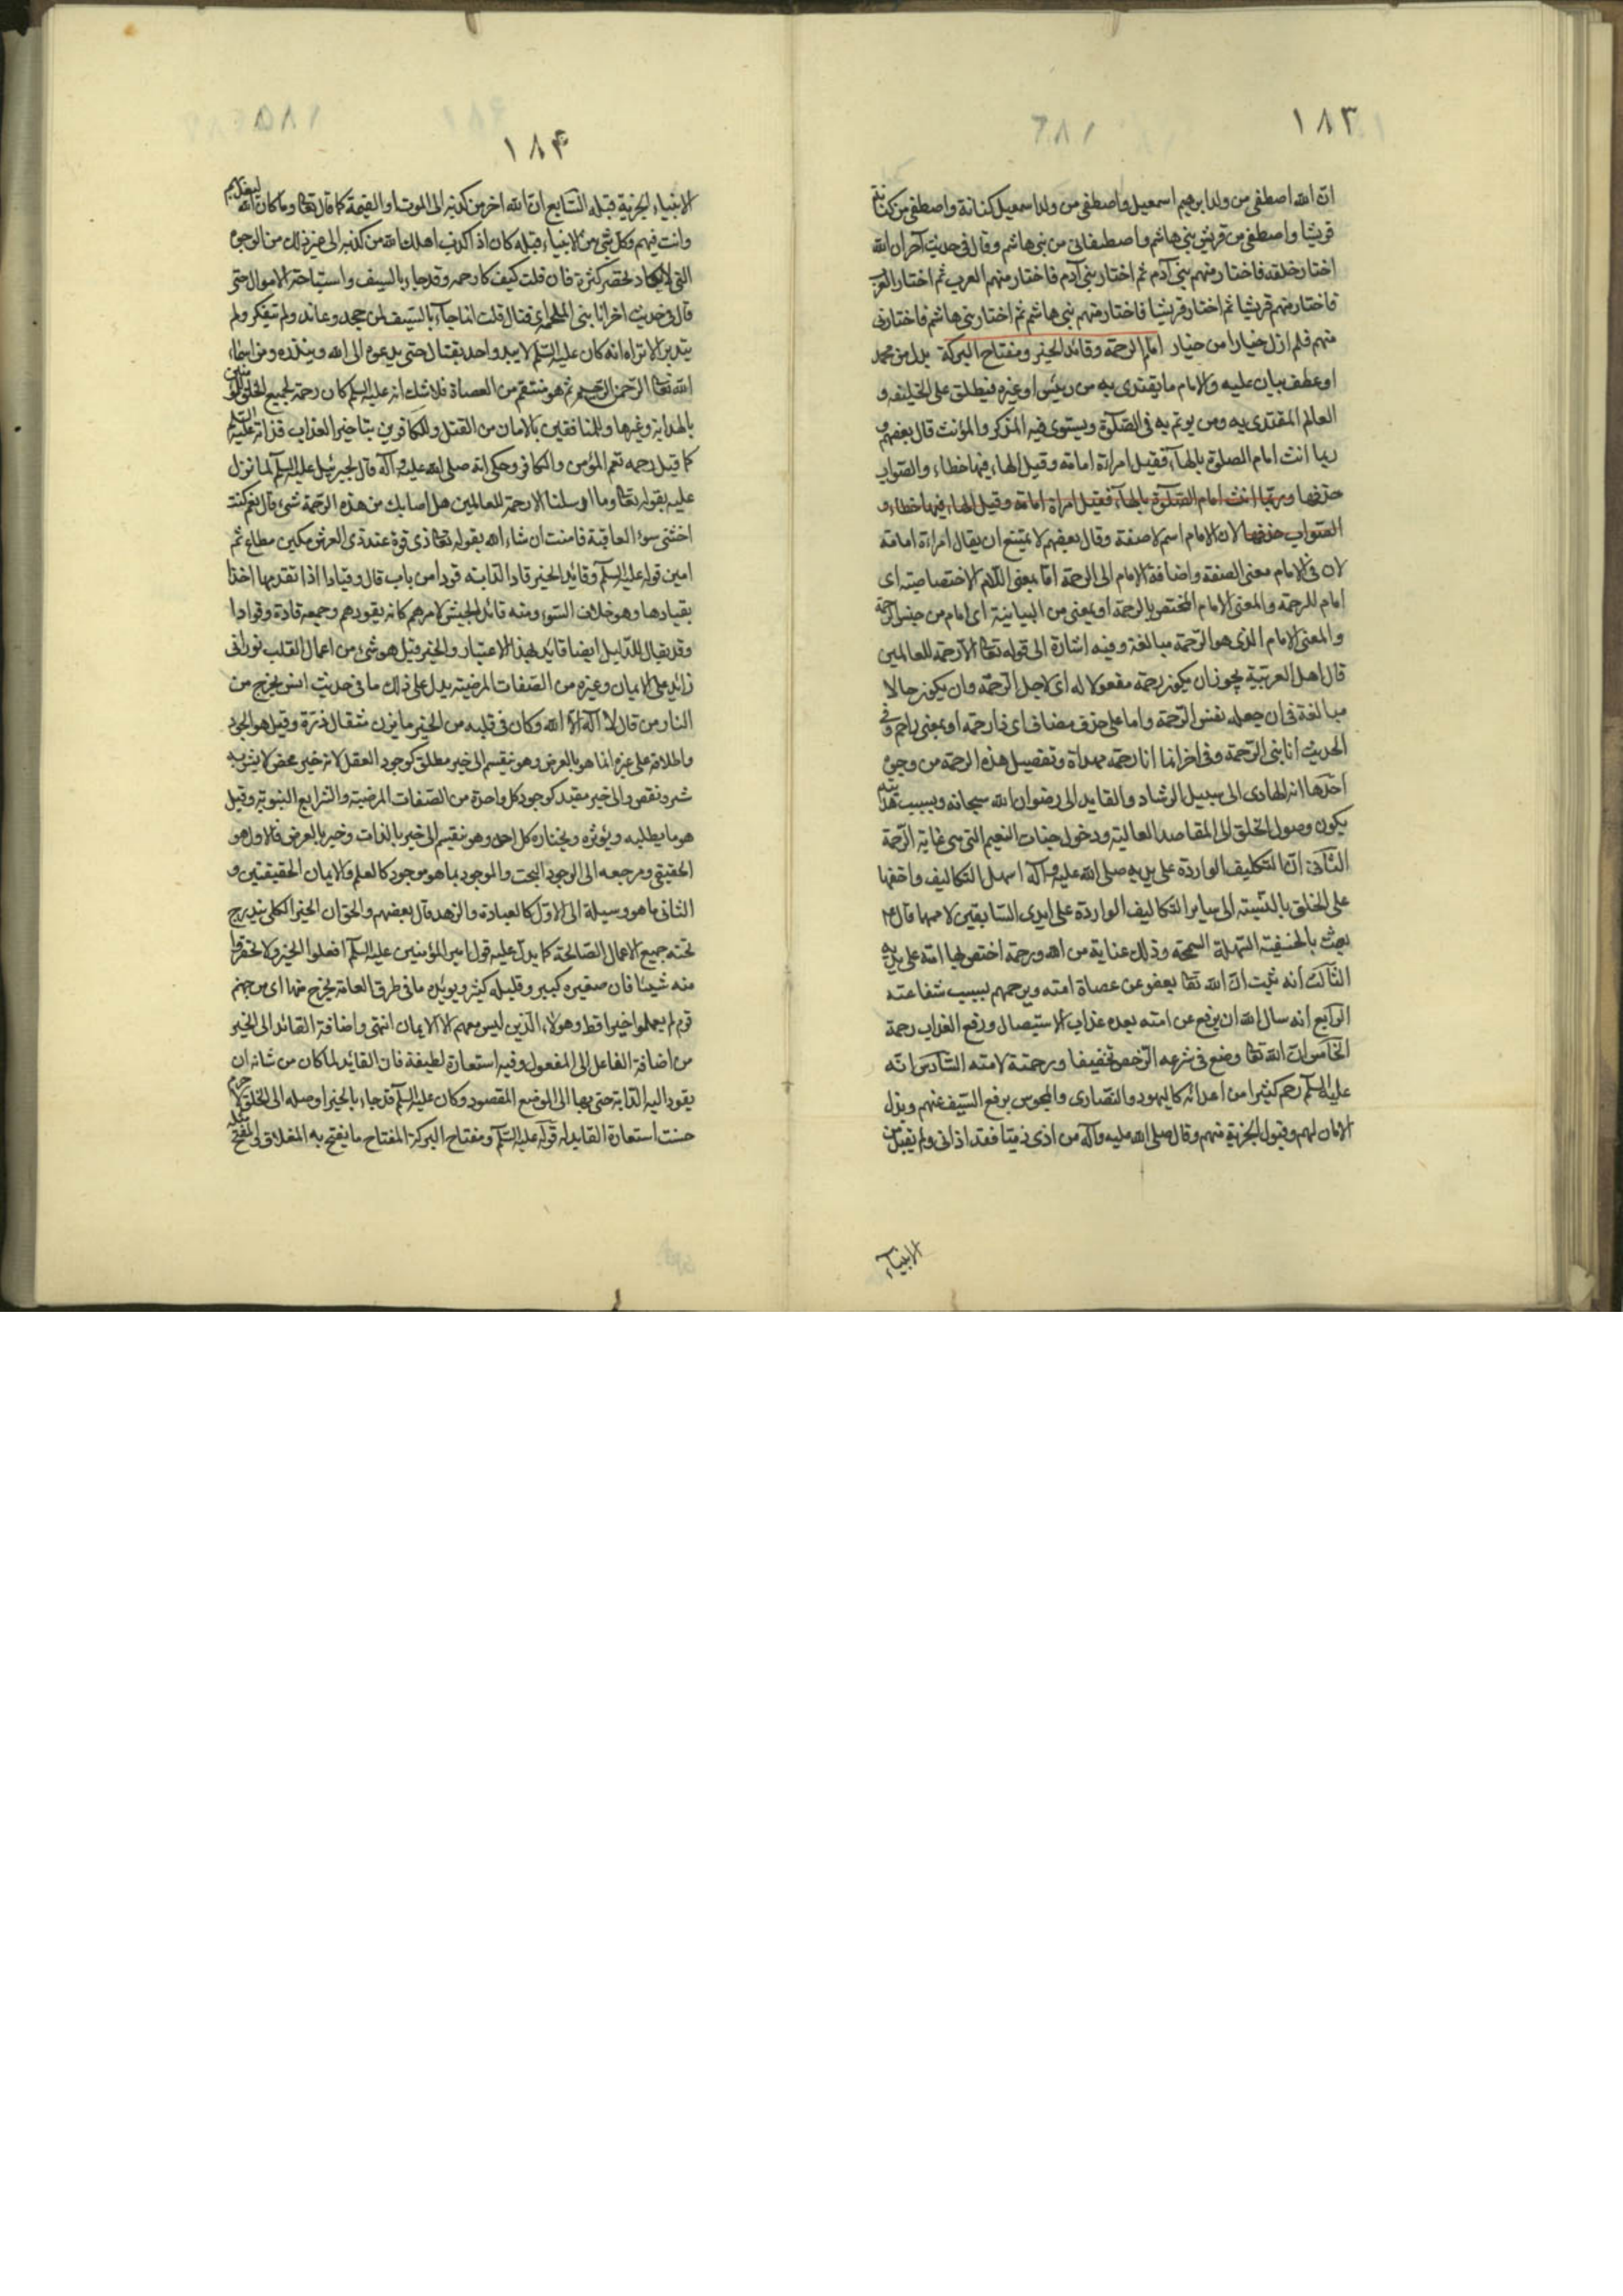 ١٨٣
ان الله اصطفى من ولد ابرهيم اسمعيل واصطفى من ولد اسمعيل كنانة واصطفى من كنانة
قريشا واصطفى من قريش بنى هاشم واصطفانى من بنى هاشم وقال فى حديث آخر ان الله
اختار خلقه فاختار منهم بنى آدم ثم اختار بنى آدم فاختار منهم العرب ثم اختار العرب
فاختار منهم قريشا ثم اختار قريشا فاختار منهم بنى هاشم ثم اختار بنى هاشم فاختارنى
منهم فلم ازل خيارا من خيار امام الرحمة وقائد الخير ومفتاح البركة بدل من محمد
او عطف بيان عليه والامام ما يقتدى به من رئيس او غيره فيطلق على الخليفه و
العالم المقتدى به ومن يوتم به فى الصلوة ويستوى فيه المذكر والمؤنث قال بعضهم و
ربما انث امام الصلوة بالهاء فقيل امراة امامة وقيل الهاء فيها خطاء والصواب
حذفها وربما انث امام الصلوة بالهاء فقيل امراة امامة وقيل الهاء فيها خطاء و
الصواب حذفها لان الامام اسم لا صفة وقال بعضهم لا يمتنع ان يقال امراءة امامة
لان فى الامام معنى الصفة واضافة الامام الى الرحمة اما بمعنى اللام الاختصاصية اى
امام للرحمة والمعنى الامام المختص بالرحمة او بمعنى من البيانية اى امام من جنس الرحمة
والمعنى الامام الذى هو الرحمة مبالغة وفيه اشارة الى قوله تعا الا رحمة للعالمين
قال اهل العربية يجوز ان يكون رحمة مفعولا له اى لاجل الرحمة وان يكون حالا
مبالغة فى ان جعله نفس الرحمة واما على حذف مضاف اى ذا رحمة او بمعنى راحم وفى
الحديث انا نبى الرحمة وفى اخر انما انا رحمة مهداة وتفصيل هذه الرحمة من وجوه
احدها انه الهادى الى سبيل الرشاد والقايد الى رضوان الله سبحانه وبسبب هدايته
يكون وصول الخلق الى المقاصد العالية ودخول جنات النعيم التى هى غاية الرحمة
الثانى ان التكليف الواردة على يديه صلى الله عليه وآله اسهل التكاليف واخفها
على الخلق بالنسبة الى ساير التكاليف الواردة على ايدى السابقين لاممها قال ع
بعثت بالحنيفية السهلة السمحة وذلك عناية من الله ورحمة اختص بها امته على يديه
الثالث انه ثبت ان الله تعا يعفو عن عصاة امته ويرحمهم بسبب شفاعته
الرابع انه سال الله ان يرفع عن امته بعده عذاب الاستيصال ورفع العذاب رحمة
الخامس ان الله تعا وضع فى شرعه الرخص تخفيفا ورحمة لامته السادس انه
عليه السلم رحم كثيرا من اعدائه كاليهود والنصارى والمجوس برفع السيف عنهم وبذل
الامان لهم وقبول الجزية منهم وقال صلى الله عليه وآله من اذى ذميا فقد اذانى ولم يقبل من
الانبياء
١٨۴
الانبياء الجزية قبله السابع ان الله اخر من كذبه الى الموت او القيمة كما قال تعا وما كان الله ليعذبهم
وانت فيهم وكل نبى من الانبياء قبله كان اذا كذب اهلك الله من كذبه الى غير ذلك من الوجوه
التى لا يكاد تحصر كثرة فان قلت كيف كان رحمه وقد جاء بالسيف واستباحة الاموال حتى
قال فى حديث اخر انا نبى الملحمة اى قتال قلت انما جاء بالسيف لمن جحد وعاند ولم يتفكر ولم
يتدبر الا تراه انه كان عليه السلم لا يبدو احد بقتال حتى يدعوه الى الله وينذره ومن اسماء
الله تعا الرحمن الرحيم ثم هو منتقم من العصاة فلا شك انه عليه السلم كان رحمة لجميع الخلق للمؤمنين
بالهداية وغيرها وللمنافقين بالامان من القتل وللكافرين بتاخير العذاب فذاته عليه السلم
كما قيل رحمه تعم المؤمن والكافر وحكى انه صلى الله عليه وآله قال لجبرئيل عليه السلم لما نزل
عليه بقوله تعا وما ارسلنا الا رحمة للعالمين هل اصابك من هذه الرحمة شئ قال نعم كنت
اخشى سوء العاقبة فامنت ان شاء الله بقوله تعا ذى قوة عند ذى العرش مكين مطاع ثم
امين قوله عليه السلم وقائد الخير قاد الدابة قودا من باب قال وقيادا اذا تقدمها اخذا
بقيادها وهو خلاف السوق ومنه قائد الجيش لاميرهم كانه يقودهم وجمعه قادة وقوادا
وقد يقال للدليل ايضا قائد بهذا الاعتبار والخير قيل هو شئ من اعمال القلب نورانى
زائد على الايمان وغيره من الصفات المرضية يدل على ذلك ما فى حديث انس يخرج من
النار من قال لا اله الا الله وكان فى قلبه من الخير ما يزن مثقال ذرة وقيل هو الوجود
واطلاقه على غيره انما هو بالعرض وهو ينقسم الى خير مطلق كوجود العقل لانه خير محض لا يشوبه
شر ونقص والى خير مقيد كوجود كل واحدة من الصفات المرضية والشرايع النبوية وقيل
هو ما يطلبه ويؤثره ويختاره كل احد وهو ينقسم الى خير بالذات وخير بالعرض فالاول هو
الحقيقى ومرجعه الى الوجود البحت والموجود بما هو موجود كالعلم والايمان الحقيقيين و
الثانى ما هو وسيلة الى الاول كالعبادة والزهد وقال بعضهم والحق ان الخير الكلى يندرج
تحته جميع الاعمال الصالحة كما يدل عليه قول امير المؤمنين عليه السلم افعلوا الخير ولا تحقروا
منه شيئا فان صغيره كبير وقليله كثير ويؤيده ما فى طرق العامة يخرج منها اى من جهنم
قوم لم يعملوا خيرا قط وهولاء الذين ليس معهم الا الايمان انتهى واضافة القائد الى الخير
من اضافة الفاعل الى المفعول وفيه استعارة لطيفة فان القايد لما كان من شانه ان
يقود اليه الدابة حتى بها الى الموضع المقصود وكان عليه السلم قد جاء بالخير اوصله الى الخلق
حسنت استعارة القايد له قوله عليه السلم ومفتاح البركة المفتاح ما يفتح به المغلاق